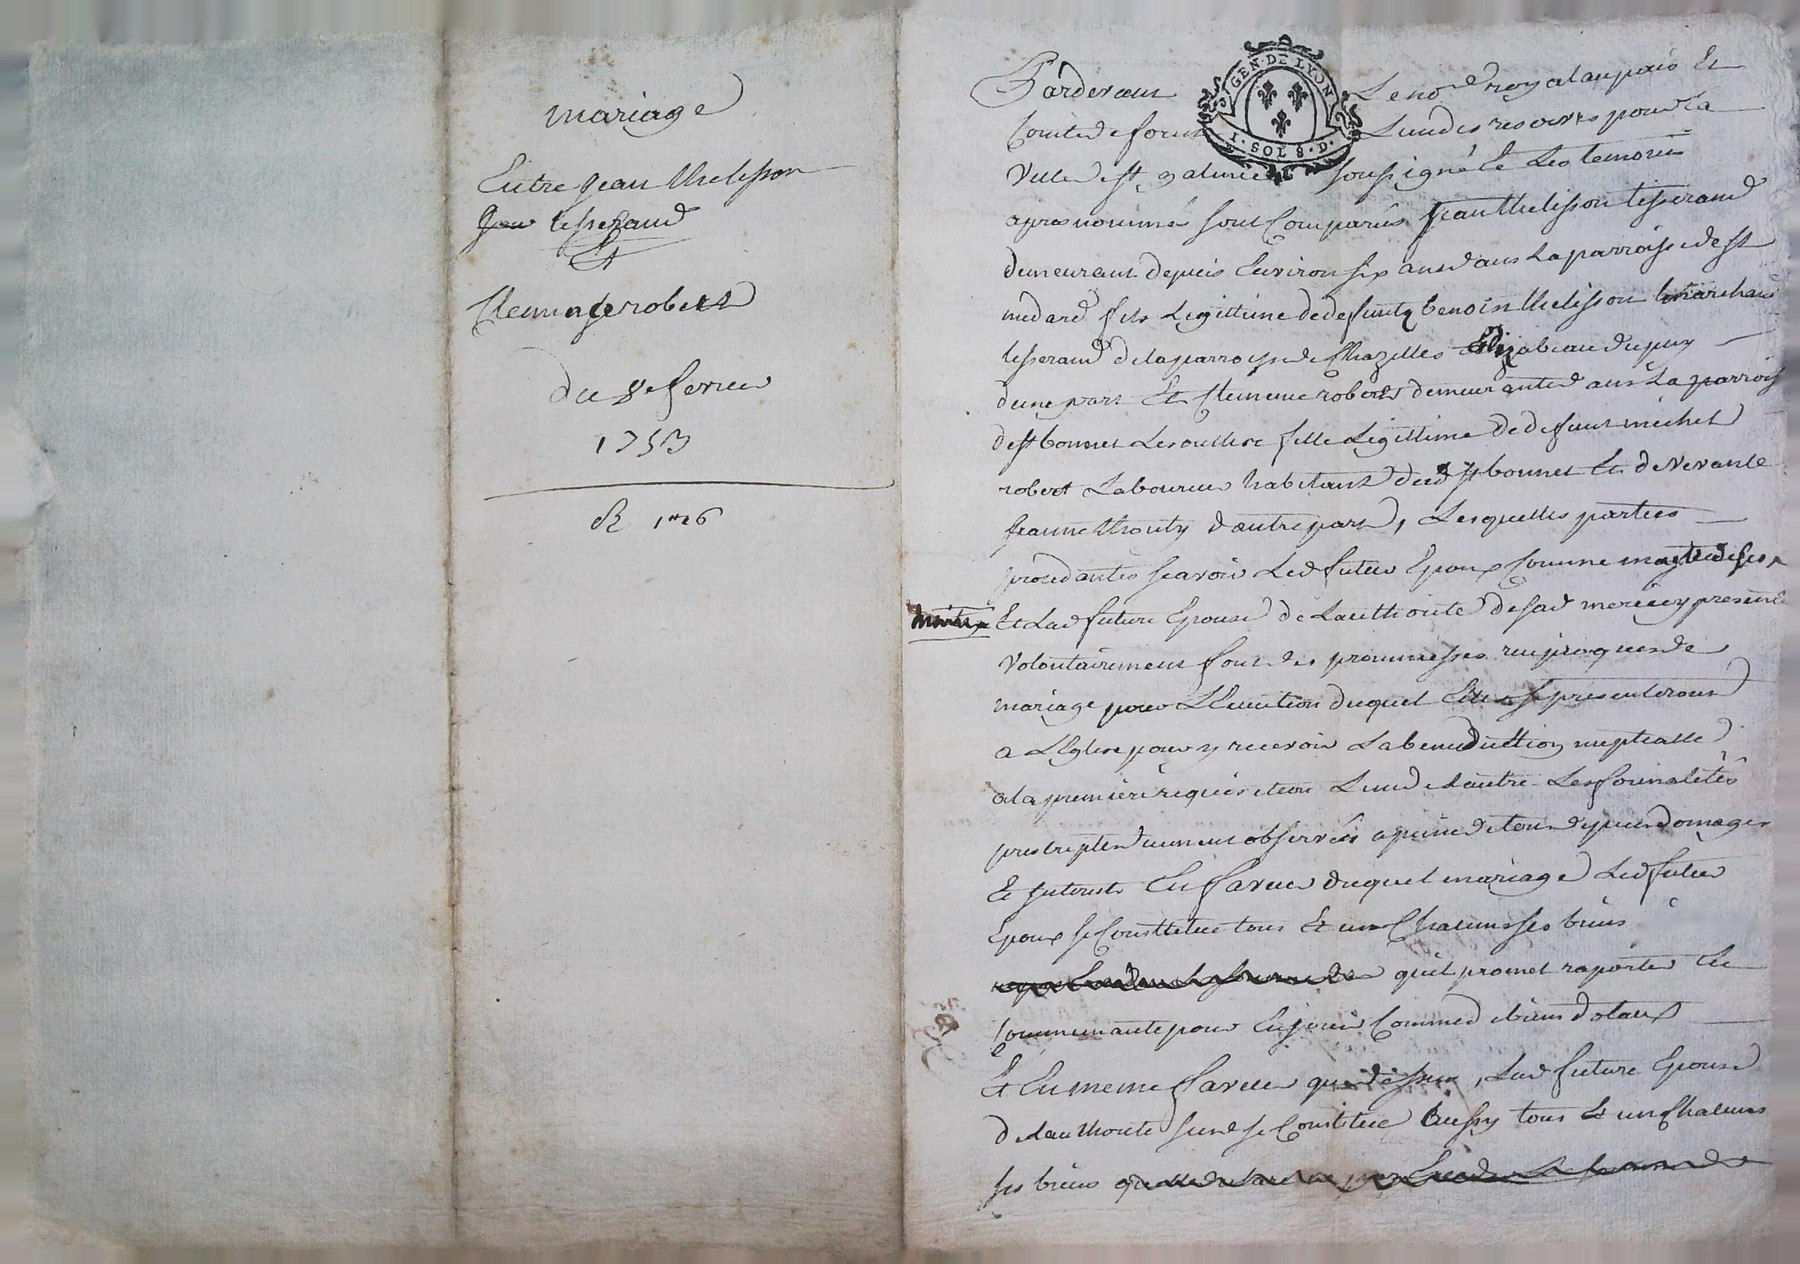 mariage
Entre Jean thelisson
tesserand
Et
Clemence robert
du 8e fevrier
1753
GEN·DE LYON
1·SOL 8·D·
Pardevant Le no.re royal au païs Et
Comté de forest Lun des reservés pour la
Ville de st galmier soussigné Et Les temoins
apres nommés sont Comparus Jean thelisson tisserand
demeurant depuis Environ six ans dans La parroisse de st
medard fils Legittime de defunts benoist thelisson marchand
tesserand de la parroisse de Chazelles Elizabeau dupuy
dune part Et Clemence robert demeurante dans La parroisse
de st bonnet Les oulles fille Legittime de defunt michel
robert Laboureur habitant dud st bonnet Et de vivante
jeanne thouly dautre part, Lesquelles parties
procedantes scavoir Led futur Epoux Comme maitre de ses
droits Et Lad future Epouse de Lauthorité de sad mere icy presente
Volontairement font des prommesses reciproques de
mariage pour LExecution duquel Elles se presenteront
a LEglise pour y recevoir La benediction nuptialle
a la premiere requisition Lun de Lautre Les formalités
prescriptes duement observées a peine de tous depens domages
Et interests En faveur duquel mariage Led futur
Epoux se Constitue tous Et un Chacuns ses biens
quil promet raporter En
Communauté pour En jouir Comme de biens dotaux
Et En meme faveur que dessus, Lad future Epouse
de Lauthorité susd se Constitue aussy tous Et un Chacuns
ses biens